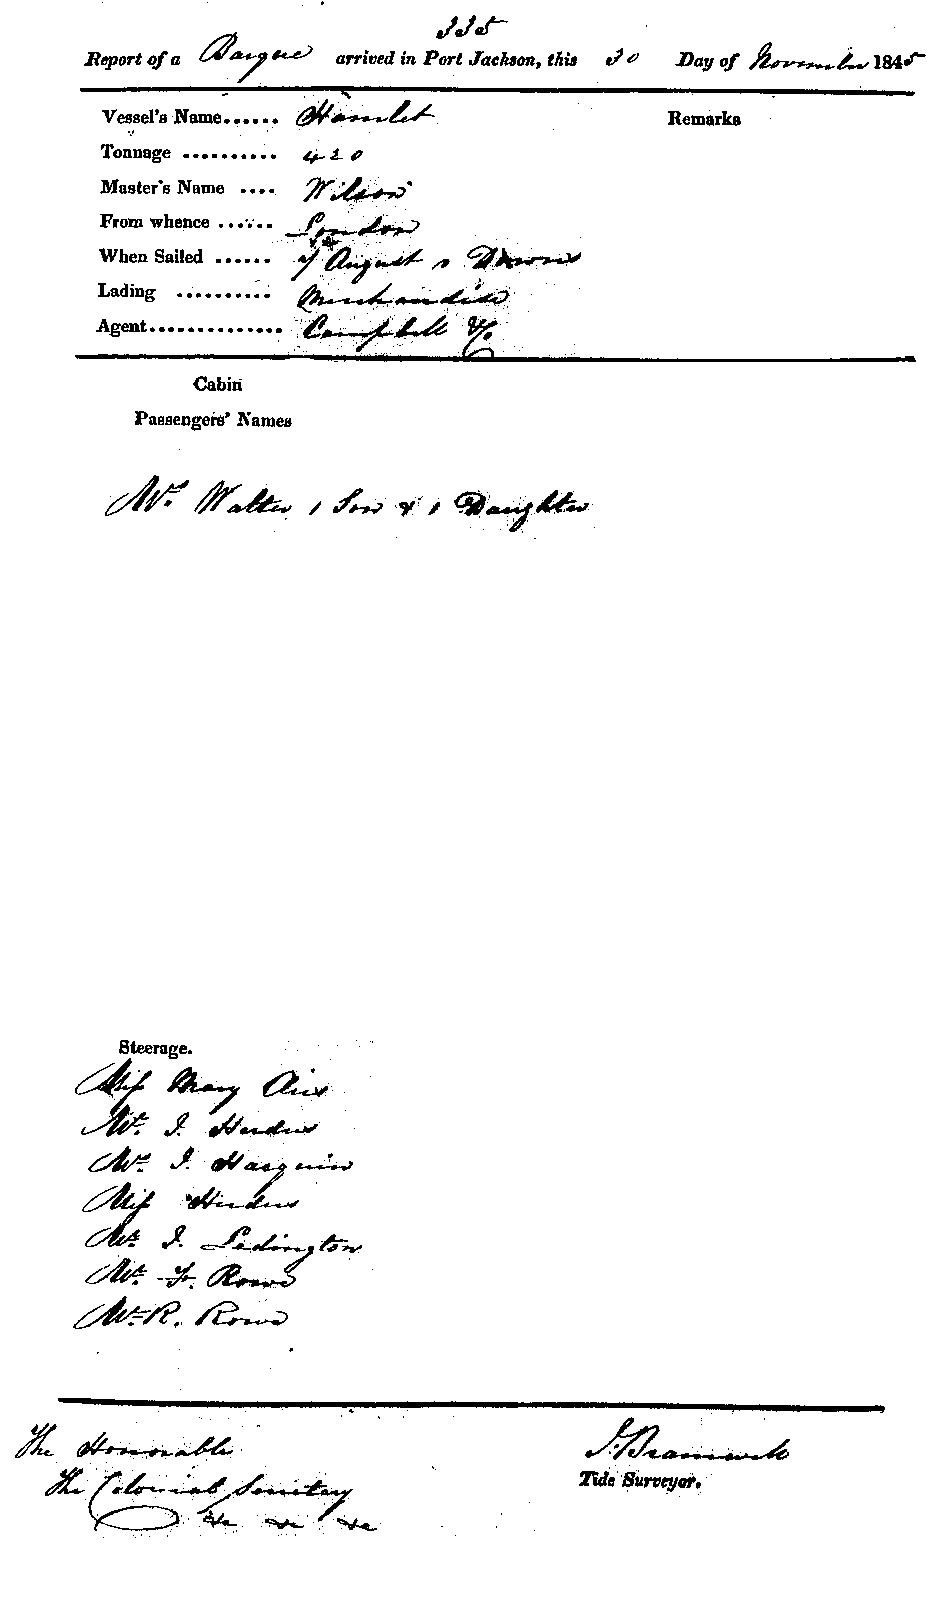 335
Report of a Barque arrived in Port Jackson, this 30 Day of November 1845
Vessel's Name...... Hamlet
Remarks
Tonnage .......... 420
Master's Name .... Wilson
From whence ...... London
When Sailed ...... August Downs
Lading .......... Merchandise
Agent.............. Campbell & Co
Cabin
Passengers' Names
Walter 1 Son & 1 Daughter
Steerage.
Miss Mary
Mr. J.
Mr. J.
Miss
J. Ledington
Mr. Fr. Rowe
Mr. R. Rowe
The Honorable
The Colonial Secretary
&c &c &c
J. Bramwell
Tide Surveyor.